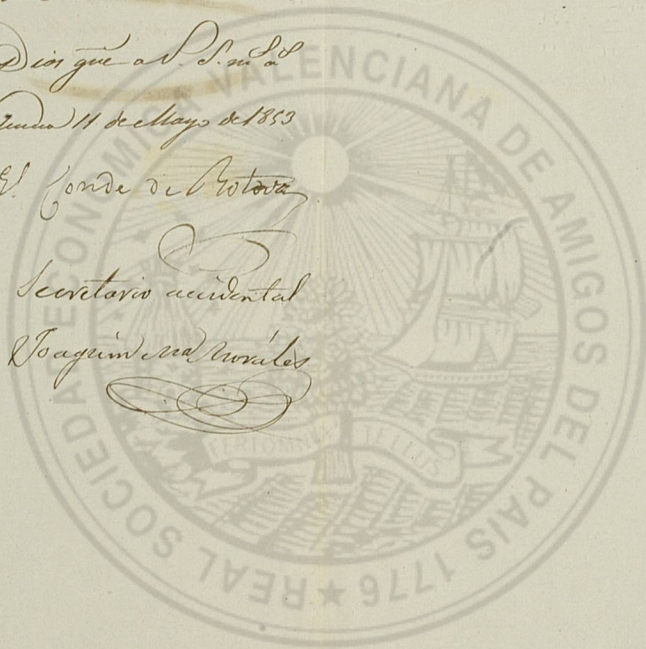 Dios gûe a V. S. m.s a.s
11 de Mayo de 1853
El Conde de Rotova
Secretario accidental
Joaquin Ma Morales
REAL SOCIEDAD ECONOMICA VALENCIANA DE AMIGOS DEL PAIS 1776
FERT OMNIA TELLUS